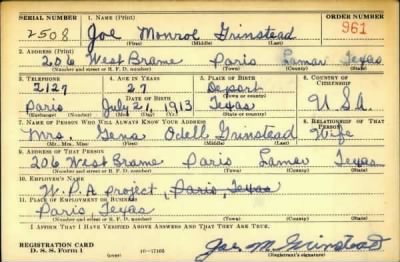 SERIAL NUMBER 1. NAME (Print) ORDER NUMBER
2508 Joe Monroe Grinstead 961
(First) (Middle) (Last)
2. ADDRESS (Print)
206 West Brame Paris Lamar Texas
(Number and street or R. F. D. number) (Town) (County) (State)
3. TELEPHONE 4. AGE IN YEARS 5. PLACE OF BIRTH 6. COUNTRY OF CITIZENSHIP
2127 27 Deport
DATE OF BIRTH (Town or county)
Paris July 21, 1913 Texas U.S.A.
(Exchange) (Number) (Mo.) (Day) (Yr.) (State or country)
7. NAME OF PERSON WHO WILL ALWAYS KNOW YOUR ADDRESS 8. RELATIONSHIP OF THAT PERSON
Mrs. Gena Odell Grinstead Wife
(Mr., Mrs., Miss) (First) (Middle) (Last)
9. ADDRESS OF THAT PERSON
206 West Brame Paris Lamar Texas
(Number and street or R. F. D. number) (Town) (County) (State)
10. EMPLOYER'S NAME
W.P.A project, Paris, Texas
11. PLACE OF EMPLOYMENT OR BUSINESS
Paris Texas
(Number and street or R. F. D. number) (Town) (County) (State)
I AFFIRM THAT I HAVE VERIFIED ABOVE ANSWERS AND THAT THEY ARE TRUE.
REGISTRATION CARD
D. S. S. Form 1 (over) 16-17105 Joe M. Grinstead
(Registrant's signature)